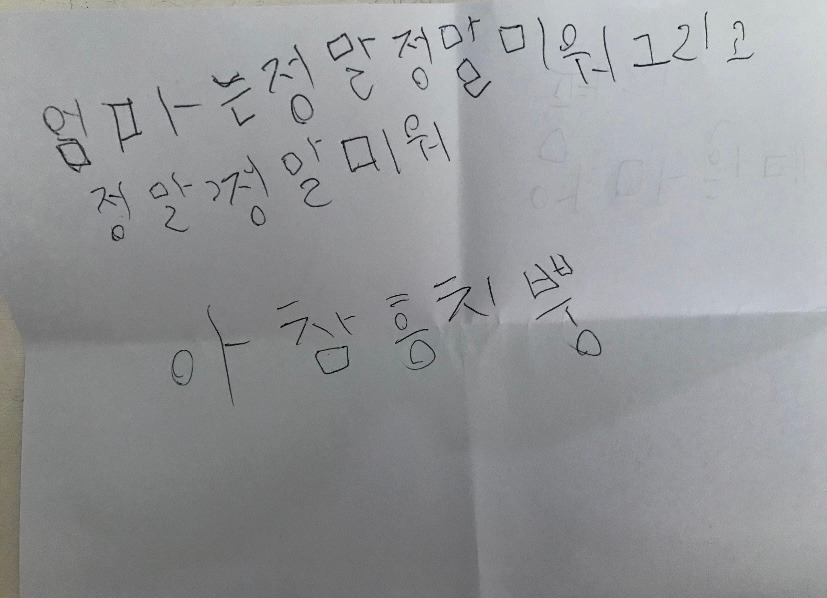 엄마는정말정말미워그리고
정말정말미워
아참흥치뿡